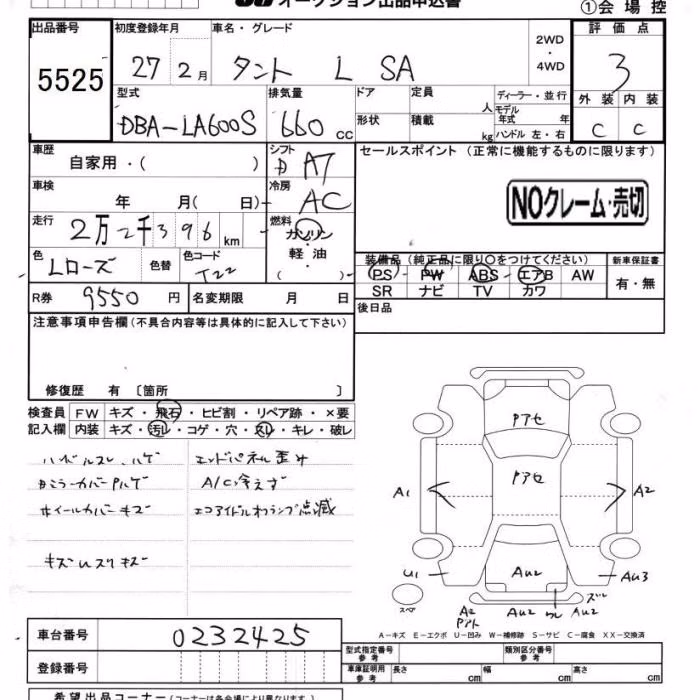 オークション出品申込書
①会場控
出品番号 初度登録年月 車名・グレード
評価点
5525
27年2月
タント L SA
2WD
・
4WD
3
型式 排気量 ドア 定員 人 ディーラー・並行
モデル年式 年
外装 内装
DBA-LA600S 660cc
形状 積載 kg ハンドル 左・右
C C
車歴 自家用・( )
シフト AT
セールスポイント(正常に機能するものに限ります)
車検 年 月( 日)
冷房 AC
NOクレーム・売切
走行 2万2千396km
燃料 ガソリン
軽油
( )
色 Lローズ 色替 色コード T22
装備品(純正品に限り○をつけてください) 新車保証書
PS PW ABS エアB AW
有・無
SR ナビ TV カワ
R券 9550円 名変期限 月 日
後日品
注意事項申告欄(不具合内容等は具体的に記入して下さい)
修復歴 有〔箇所 〕
検査員 FW キズ・飛石・ヒビ割・リペア跡・×要
記入欄 内装 キズ・汚レ・コゲ・穴・スレ・キレ・破レ
ハンドルスレ、ハゲ エンドパネル歪み
Dミラーカバー Pハゲ A/C冷えず
ホイールカバーキズ エコアイドルオフランプ点滅
キズ U スリキズ
Pアセ
Pアセ
A1 A2
U1 AU2 AU3
スペア
A2
Pアト
AU2 ワレ AU2 ズレ
A-キズ E-エクボ U-凹み W-補修跡 S-サビ C-腐食 XX-交換済
車台番号 0232425
型式指定番号
参考
類別区分番号
参考
登録番号
車庫証明用
参考
長さ cm 幅 cm 高さ cm
希望出品コーナー(コーナーは各会場により異なります)